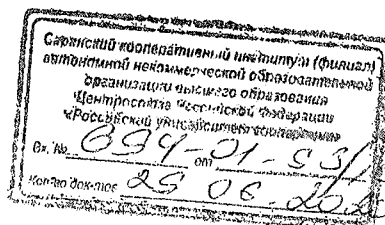 Саранский кооперативный институт (филиал)
автономной некоммерческой образовательной
организации высшего образования
Центросоюза Российской Федерации
«Российский университет кооперации»
Вх. № 694-01-53/ от
Кол-во док-тов 25 06. 202